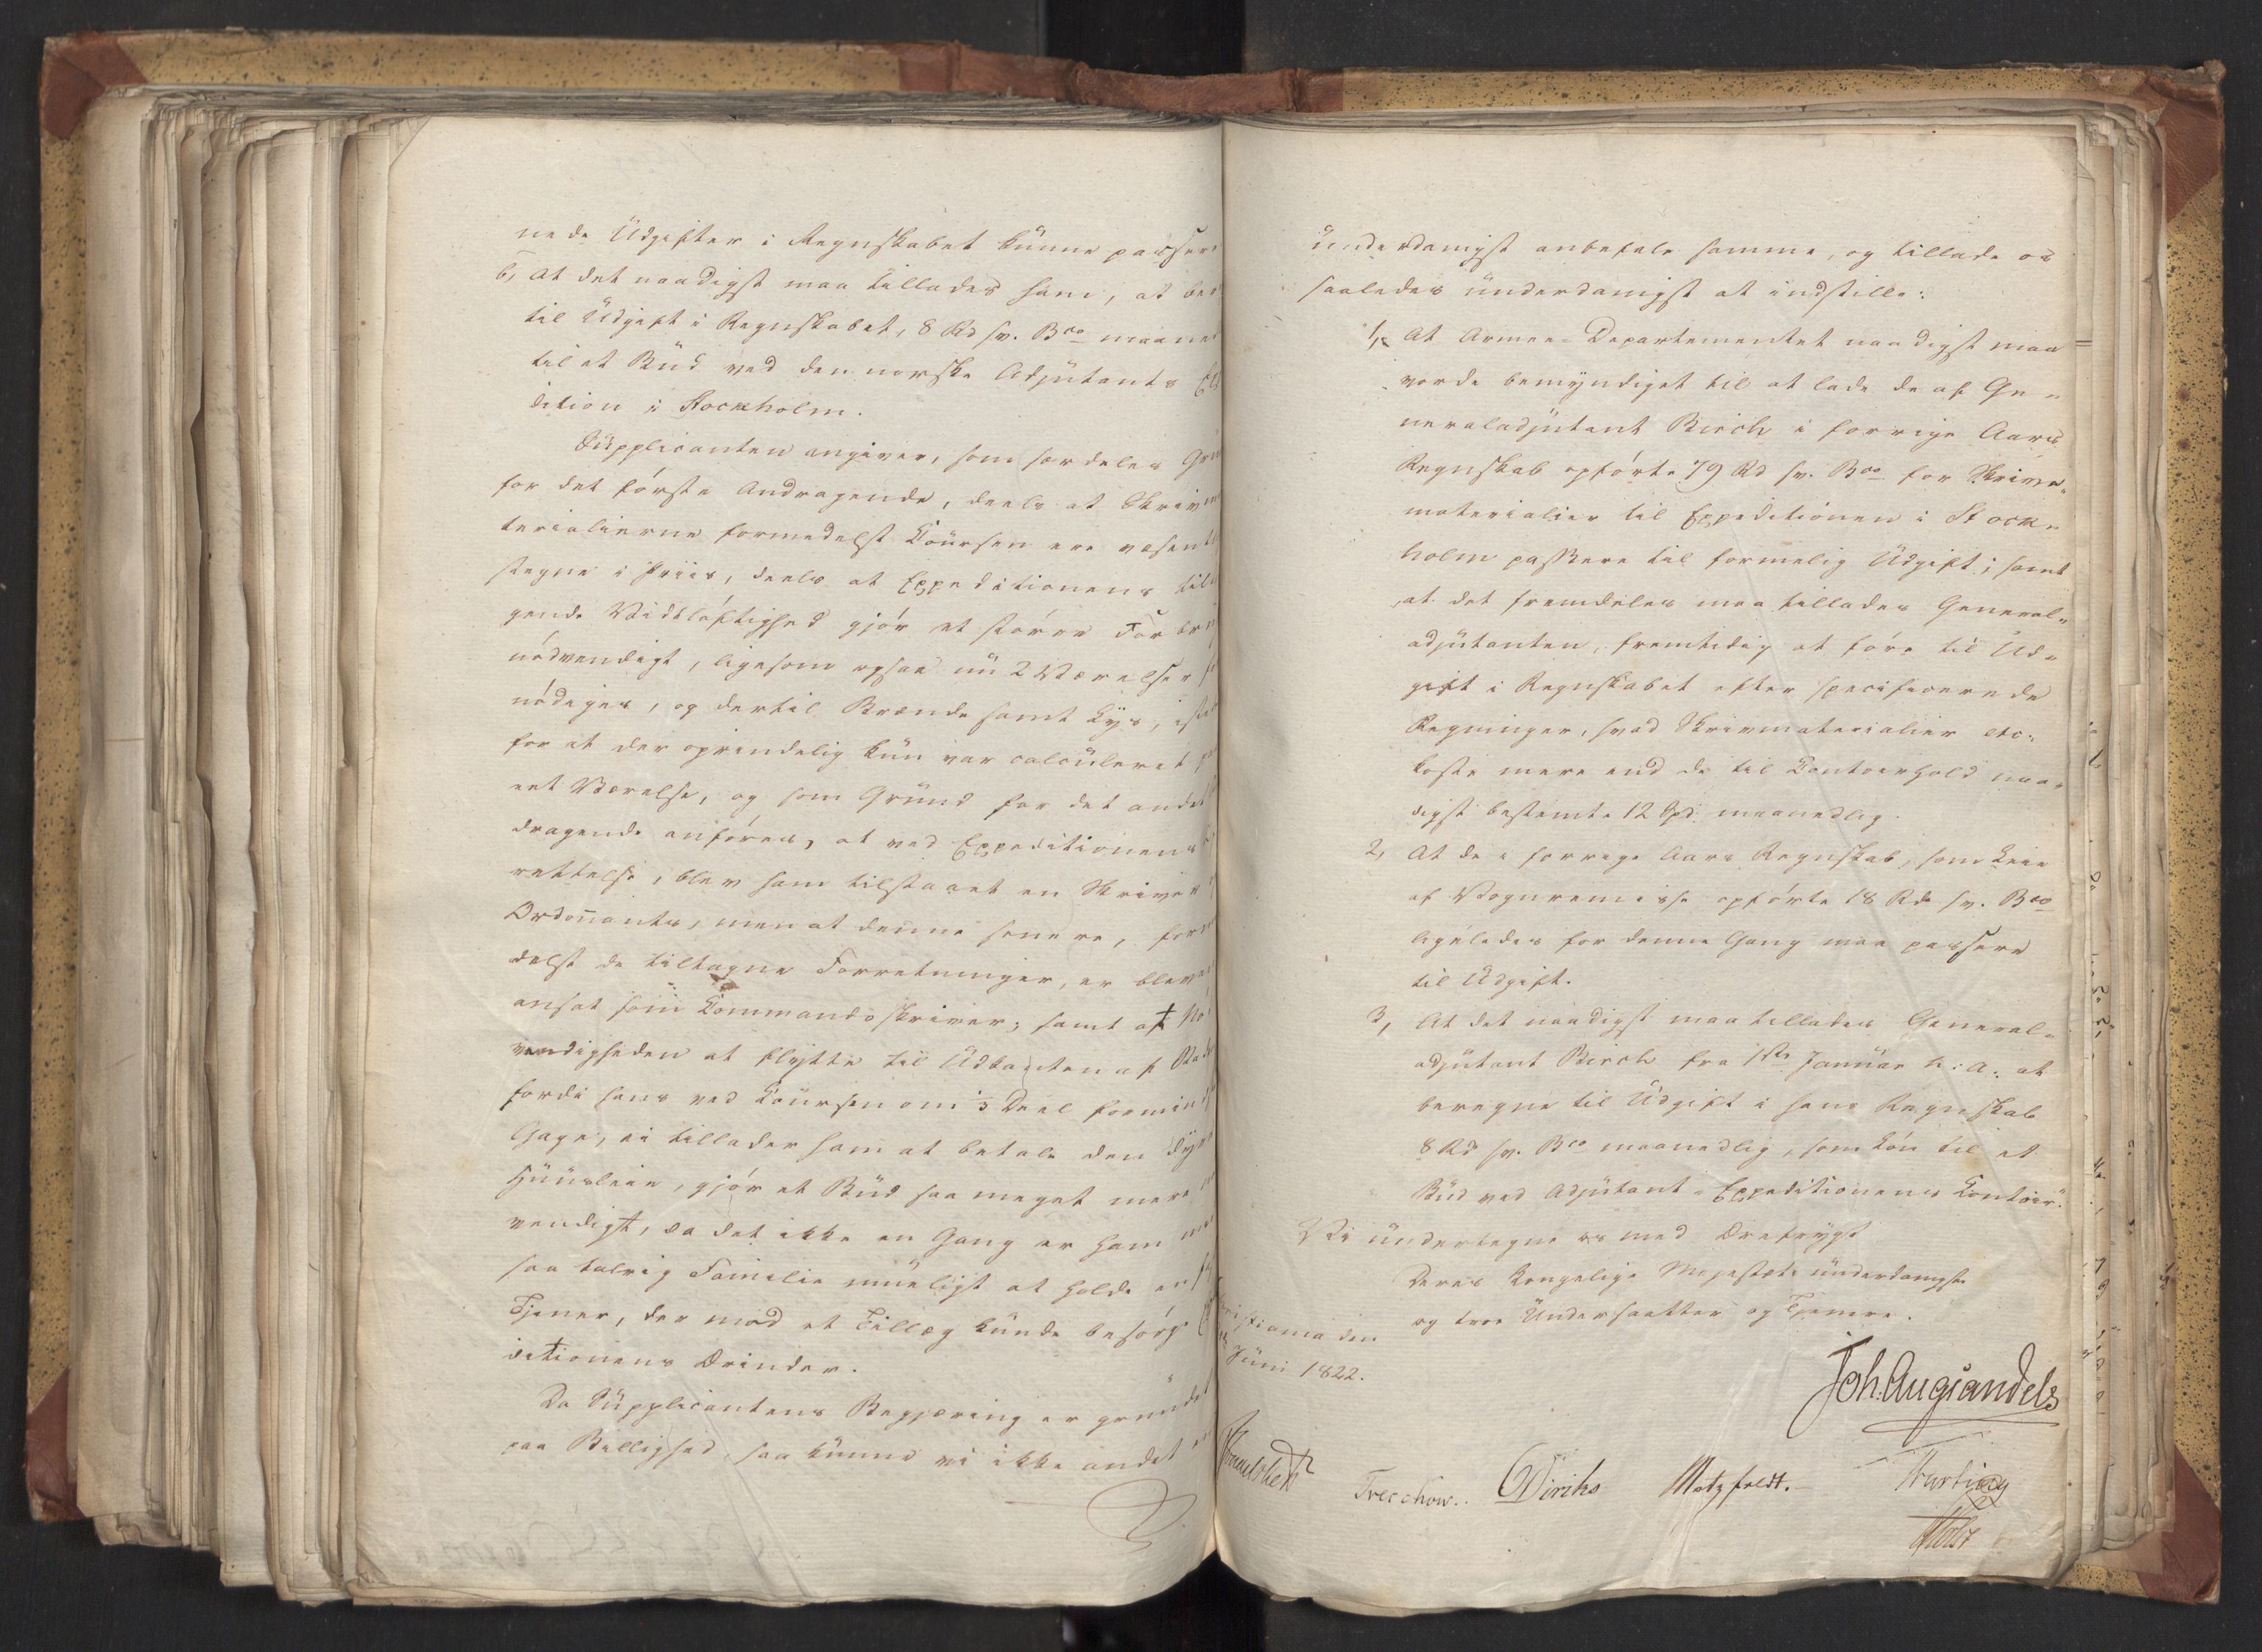 nede Udgifter i Regnskabet kunne passere
b, At det naadigst maa tillades ham, at be
til Udgift i Regnskabet, 8 Rd sv. Bco maaned
til et Bud ved den norske Adjutants Exp
dition i Stockholm.
Supplicanten angiver, som særdeles Gru
for det første Andragende, deels at Skrivm
terialierne formedelst Coursen ere væsentl
stegne i Priis, deels at Expeditionens tilt
gende Vidtløftighed gjør et større Forbru
nødvendigt, ligesom ogsaa nu 2 Værelser
nødiges, og dertil Brænde samt Lys, isted
for at der oprindelig kun var calculeret
eet Værelse, og som Grund for det andet
dragende anføres, at ved Expeditionens
rettelse, blev ham tilstaaet en Skriver
Ordonnants, men at denne senere, forme
delst de tiltagne Forretninger, er bleven
ansat som Commandoskriver; samt at Nø
vendigheden at flytte til Udkanten af Stad
fordi hans ved Coursen om ⅓ Deel formind
Gage, ei tillader ham at betale den dyre
Huusleie, gjør et Bud saa meget mere
vendigt, da det ikke en Gang er ham med
saa talrig Familie mueligt at holde en
Tjener, der mod et Tillæg kunde besørge Ex
ditionens Ærinder.
Da Supplicantens Begjæring er grundet
paa Billighed, saa kunne vi ikke andet
underdanigst anbefale samme, og tillade os
saaledes underdanigst at indstille:
1, At Armee-Departementet naadigst maa
vorde bemyndiget til at lade de af Ge-
neraladjutant Birch i forrige Aars
Regnskab opførte 79 Rd sv. Bco for Skrive-
materialier til Expeditionen i Stock-
holm passere til formelig Udgift; samt
at det fremdeles maa tillades General-
adjutanten, fremtidig at føre til Ud-
gift i Regnskabet efter specificerede
Regninger, hvad Skrivmaterialier etc:
koste mere end de til Contoirhold naa-
digst bestemte 12 Spd. maanedlig.
2, At de i forrige Aars Regnskab, som Leie
af Vognremisse opførte 18 Rd sv. Bco
ligeledes for denne Gang maa passere
til Udgift.
3, At det naadigst maa tillades General-
adjutant Birch fra 1ste Januar h: a: at
beregne til Udgift i hans Regnskab
8 Rd sv. Bco maanedlig, som Løn til et
Bud ved Adjutant-Expeditionens Contoir.
Vi undertegne os med Ærefrygt
Deres Kongelige Majestæts underdanigste
og troe Undersaatter og Tjenere.
istiania den
Juni 1822.
Joh. Aug. Sandels
Sommerhielm Treschow. CDiriks Motzfeldt. Krefting
Holst